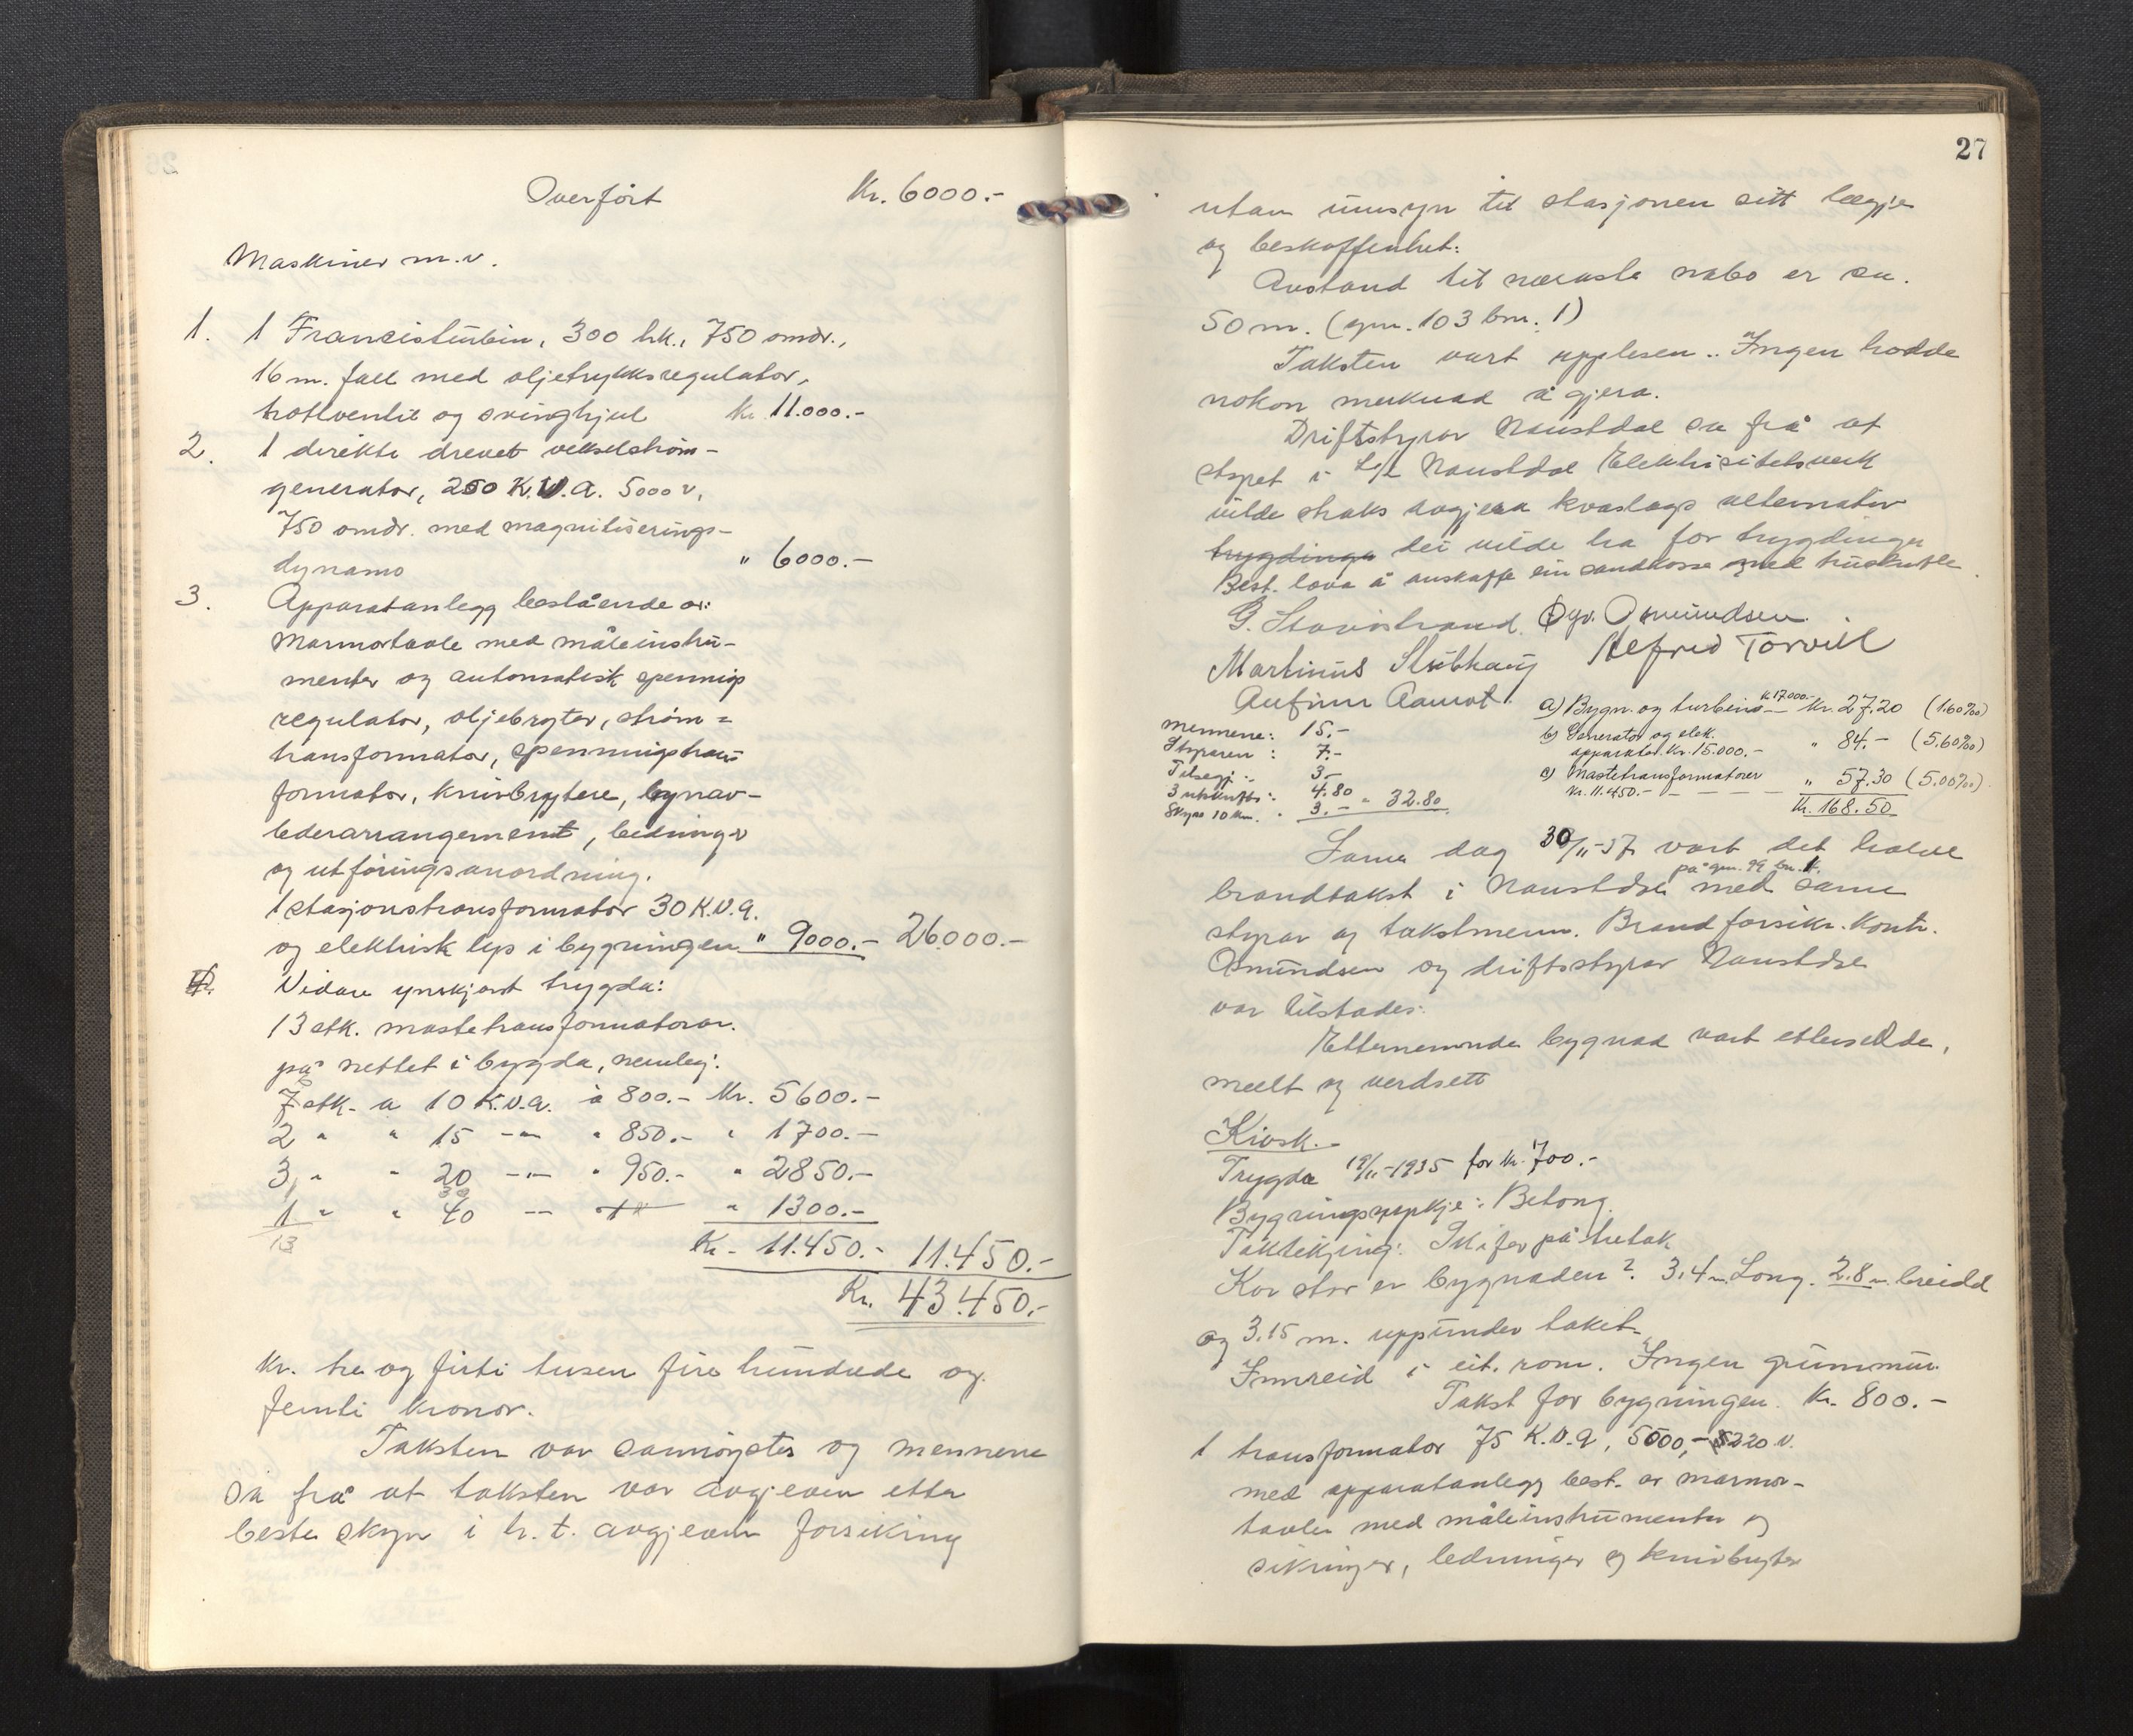 Overført Kr. 6000.-
Maskiner m.v.
1. 1 Francisturbin, 300 hk., 750 omdr.,
16 m. fall med oljetrykksregulator,
hovedventil og svinghjul Kr. 11.000.-
2. 1 direkte drevet vekselstrøm-
generator, 250 K.V.A. 5000 v,
750 omdr. med magnitiserings-
dynamo " 6000.-
3. Apparatanlegg bestående av:
Marmortavle med måleinstru-
menter og automatisk spennings
regulator, oljebryter, strøm=
transformator, spenningstrans=
formator, knivbrytere, lynav-
lederarrangement, ledninger
og utføringsanordning.
1 stasjonstransformator 30 K.V.A.
og elektrisk lys i bygningen " 9000.- 26000.-
Vidare ynskjast trygda:
13 stk. mastetransformatorar.
på nettet i bygda, nemleg:
7 stk. a 10 K.V.A. à 800.- Kr. 5600.-
2 " " 15 -"- " 850.- " 1700.-
3 " " 20 -"- " 950.- " 2850.-
1 " " 40 -"- " 1300.-
13
Kr. 11.450.- 11.450.-
Kr. 43.450.-
Kr. tre og førti tusen fire hundrede og
femti kronor.
Taksten var samrøystes og mennene
sa frå at taksten var avgjeven etter
beste skyn i h.t. avgjeven forsikring
27
utan umsyn til stasjonen sitt lægje
og beskaffenhet:
Avstand til næraste nabo er ca.
50 m. (gnr. 103 bnr. 1)
Taksten vart upplesen. Ingen hadde
nokon merknad å gjera.
Driftstyrar Naustdal sa frå at
styret i L/L Naustdal Elektrisitetsverk
vilde straks avgjera kvaslags alternativ
trygdinga dei vilde ha for trygdinga
Best. lova å anskaffe ein sandkasse med
G. Stavøstrand. Øyv. Osmundsen.
Martinus Stubhaug Alfred Torvill
Anfinn Aamot.
Mennene: 15.-
Styraren : 7.-
Tilsegj. : 3.-
3 utskrifts : 4.80
Skyss 10 km. " 3.- " 32.80
a) Bygn. og turbin Kr. 17.000.- Kr. 27.20 (1.60‰)
b) Generator og elek.
apparater. Kr. 15.000.- " 84.- (5.60‰)
c) Mastetransformatorer " 57.30 (5.00‰)
Kr. 11.450.- - - - -
Kr. 168.50
Same dag 30/11-37 vart det halde
på gnr. 99 bnr. 1.
brandtakst i Naustdal med same
styrar og takstmenn. Brandforsikr. kontr.
Osmundsen og driftsstyrar Naustdal
var tilstades.
Etternemnde bygnad vart ettersedde,
mælt og verdsett
Kiosk.-
Trygda 19/11-1935 for kr. 700.-
Bygningsyrkje: Betong.
Taktekjing: Skifer på tretak
Kor stor er bygnaden? 3,4 m Long. 2.8 m. breidd
og 3,15 m. uppunder taket.
Innreid i eit rom. Ingen grunnmur.
Takst for bygningen. Kr. 800.-
1 transformator 75 K.V.A, 5000,- 220 v.
med apparatanlegg best. av marmor-
tavler med måleinstrumenter og
sikringer, ledninger og knivbryter